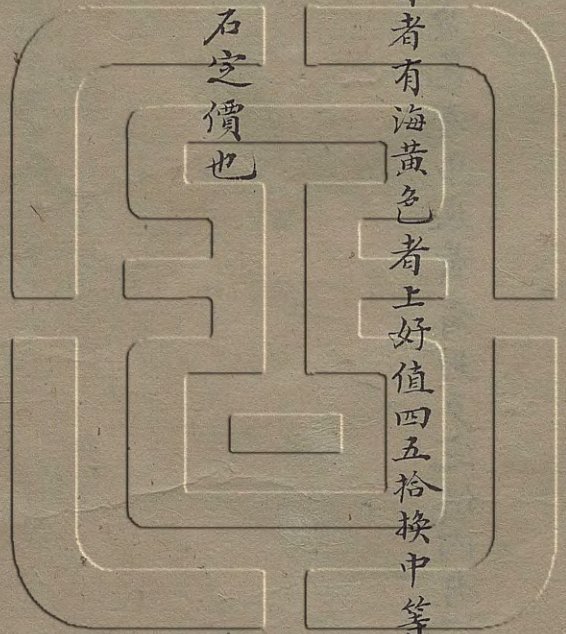 者有海黃色者上好值四五拾換中等
石定價也